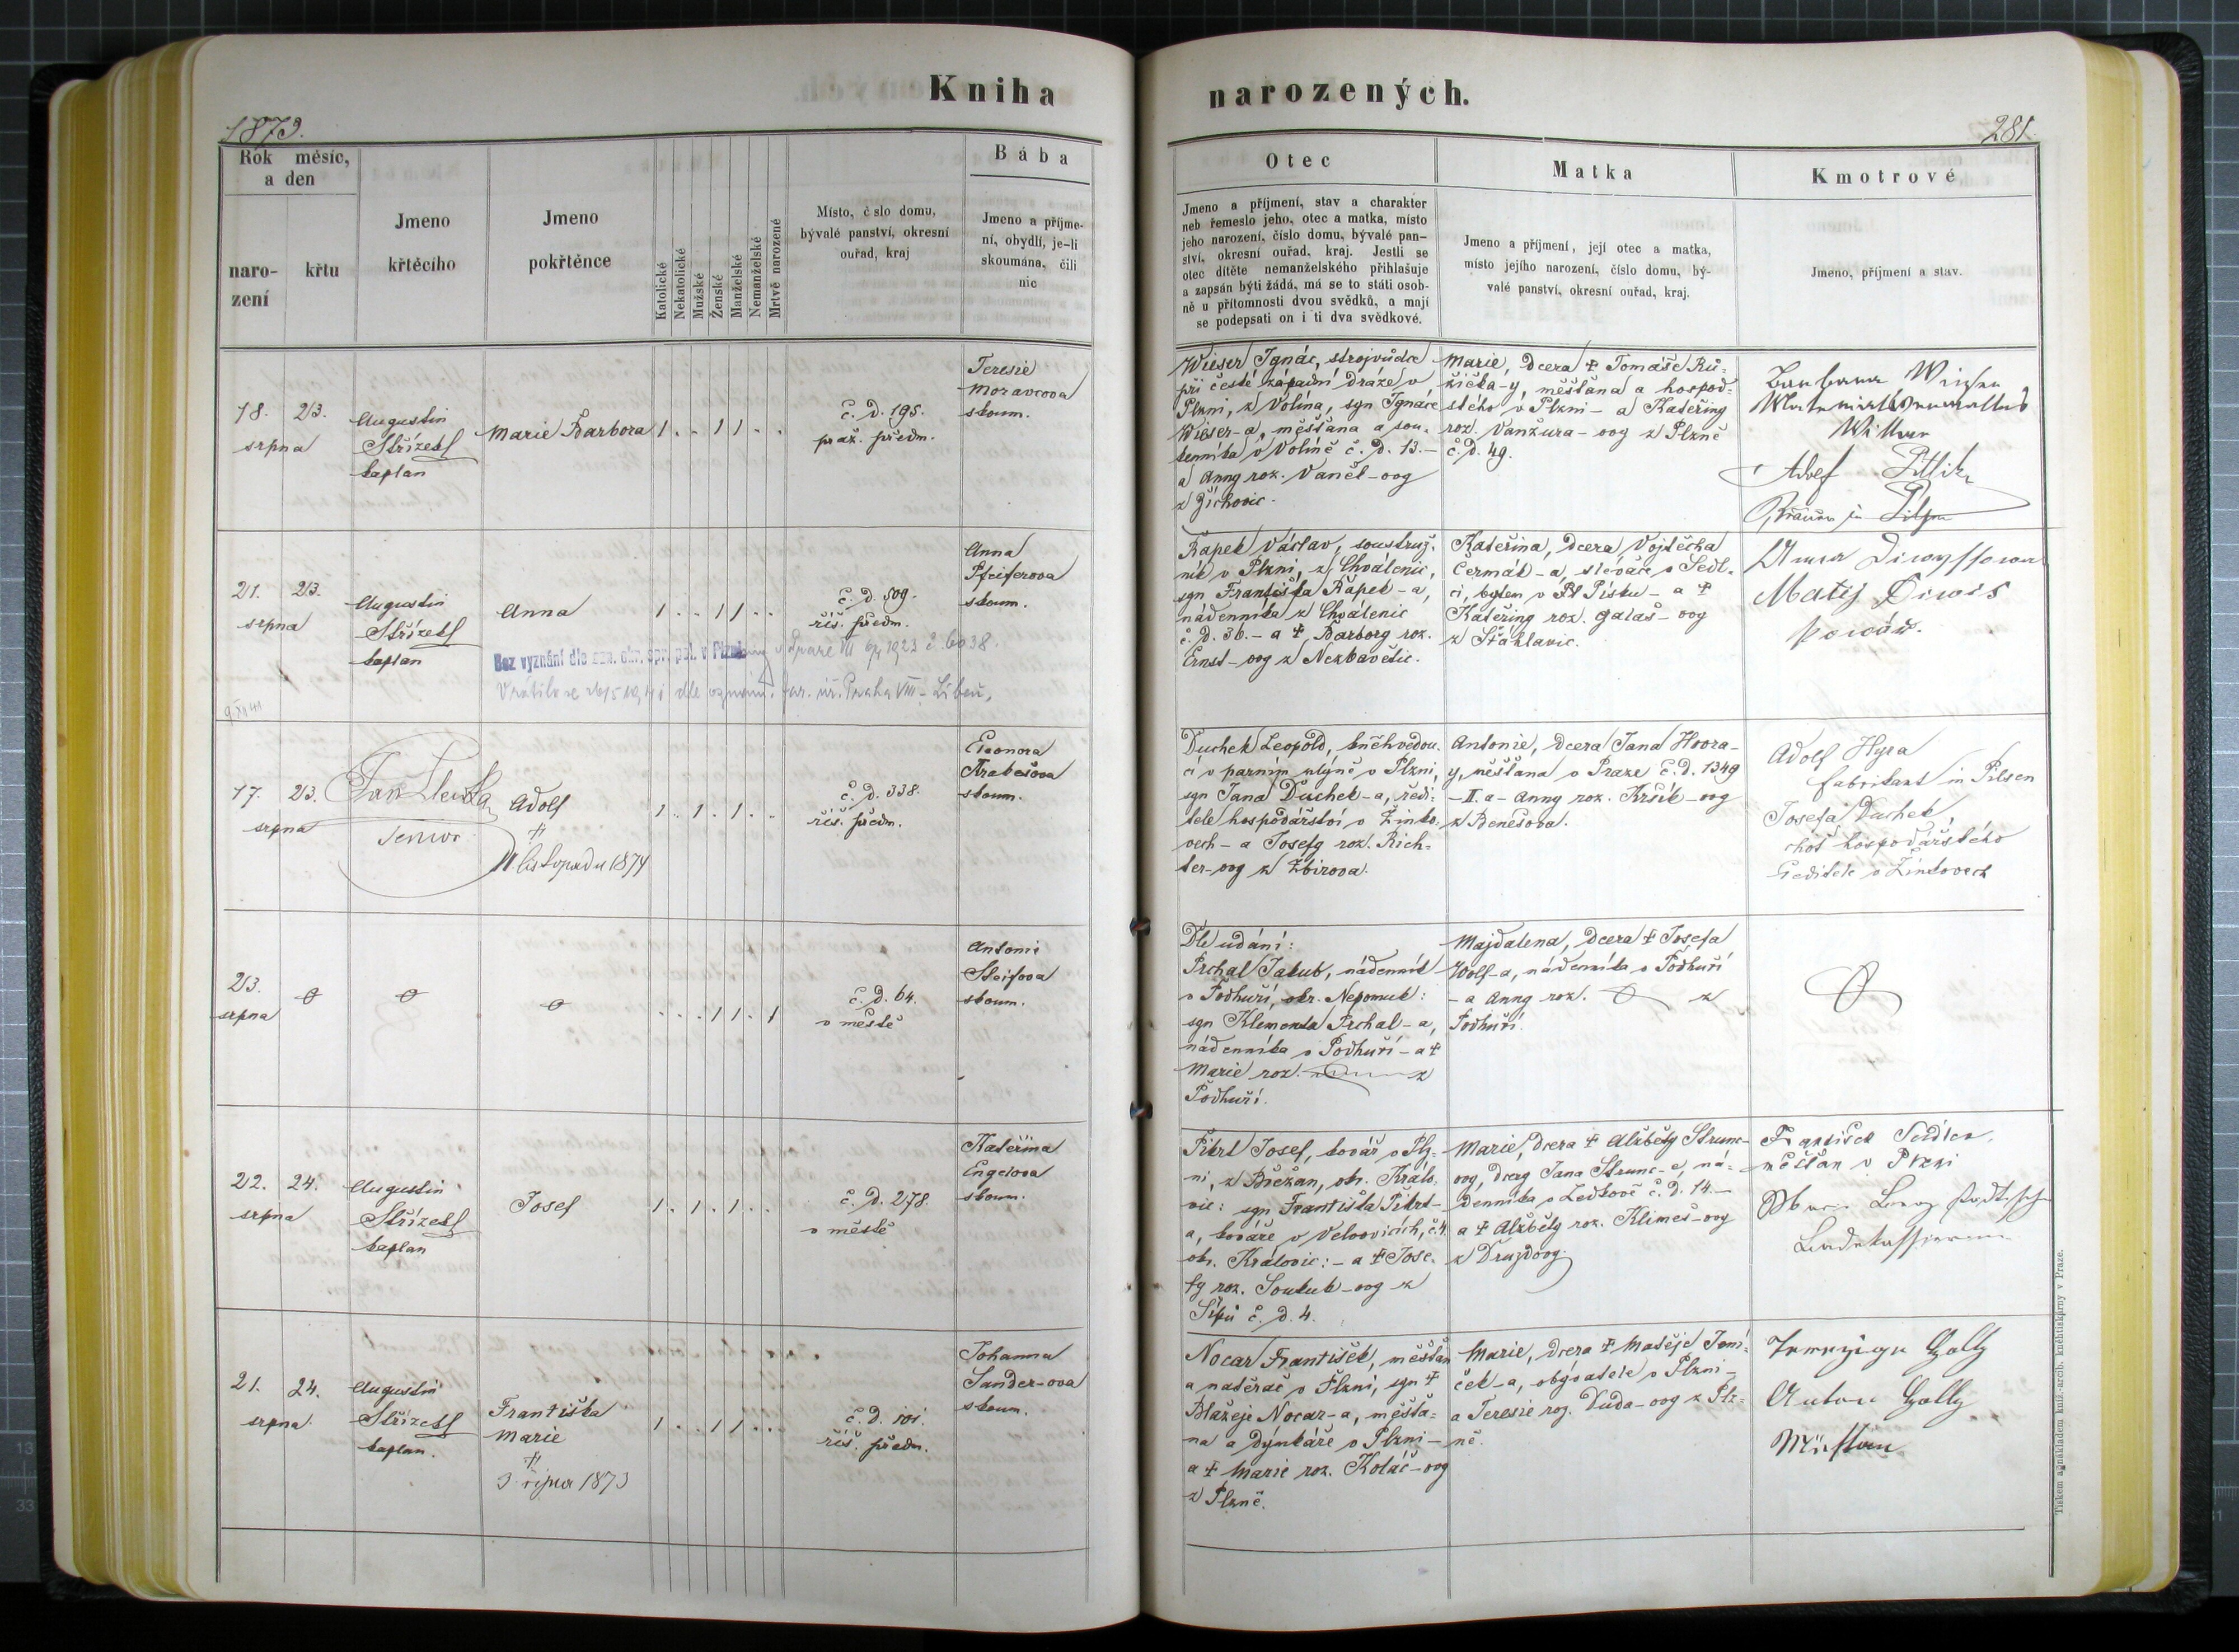 Kniha
narozených.
1873.
281.
Rok měsíc,
a den
naro-
zení
křtu
Jmeno
křtěcího
Jmeno
pokřtěnce
Katolické
Nekatolické
Mužské
Ženské
Manželské
Nemanželské
Mrtvě narozené
Místo, číslo domu,
bývalé panství, okresní
ouřad, kraj
Bába
Jmeno a příjme-
ní, obydlí, je-li
skoumána, čili
nic
Otec
Jmeno a příjmení, stav a charakter
neb řemeslo jeho, otec a matka, místo
jeho narození, číslo domu, bývalé pan-
ství, okresní ouřad, kraj. Jestli se
otec dítěte nemanželského přihlašuje
a zapsán býti žádá, má se to státi osob-
ně u přítomnosti dvou svědků, a mají
se podepsati on i ti dva svědkové.
Matka
Jmeno a příjmení, její otec a matka,
místo jejího narození, číslo domu, bý-
valé panství, okresní ouřad, kraj.
Kmotrové
Jmeno, příjmení a stav.
18. 23.
srpna
Augustin
Střízek
kaplan
Marie Barbora
1 . . 1 1 . .
č. d. 195.
praž. předm.
Teresie
Moravcova
skoum.
Wieser Ignác, strojvůdce
při české západní dráze v
Plzni, z Volina, syn Ignáce
Wieser-a, měšťana a sou-
kenníka v Volině č. d. 13. –
a Anny roz. Vaněk-ovy
z Žichovic.
Marie, dcera † Tomáše Rů-
žička-y, měšťana a hospod-
ského v Plzni – a Kateřiny
roz. Vanžura-ovy z Plzně
č. d. 49.
Barbara
Adolf
in Pilsen
21. 23.
srpna
Augustin
Střízek
kaplan
Anna
1 . . 1 1 . .
č. d. 509.
říš. předm.
Anna
Pfeiferova
skoum.
Bez vyznání dle ozn. okr. spr. pol. v 1923 č. 6038.
Vrátila se 26/5 1941 dle oznám. far. úř. Praha VIII – Libeň,
Řapek Václav, soustruž-
ník v Plzni, z Chválenic,
syn Františka Řapek-a,
nádenníka z Chválenic
č. d. 36. – a †, Barbory roz.
Ernst-ovy z Nezbavětic.
Kateřina, dcera Vojtěcha
Čermák-a, slévače v Sedl-
ci, bytem v Písku – a †
Kateřiny roz. Galaš-ovy
z Štáhlavic.
Anna
Matěj
17. 23.
srpna
Jan
senior
Adolf
†
11 listopadu 1874
1 . 1 . 1 . .
č. d. 338.
říš. předm.
Eleonora
Hrabešova
skoum.
Duchek Leopold, knihvedou-
cí v parním mlýně v Plzni,
syn Jana Duchek-a, ředi-
tele hospodářství v Žinko-
vech – a Josefy roz. Rich-
ter-ovy z Zbirova.
Antonie, dcera Jana Hovora-
y, měšťana v Praze č. d. 1349
– II. a – Anny roz. Kršík-ovy
z Benešova.
Adolf Hyra
fabrikant in Pilsen
Josefa Duchek
choť hospodářského
ředitele v Žinkovech
23.
srpna
. . . 1 1 . 1
č. d. 64.
v městě
Antonie
Steifova
skoum.
Dle udání:
Prchal Jakub, nádenník
v Podhuří, okr. Nepomuk:
syn Klementa Prchal-a,
nádenníka v Podhuří – a †
Marie roz. z
Podhuří.
Majdalena, dcera † Josefa
Wolf-a, nádenníka v Podhuří
– a Anny roz. z
Podhuří.
22. 24.
srpna
Augustin
Střízek
kaplan
Josef
1 . 1 . 1 . .
č. d. 278.
v městě
Kateřina
Engelova
skoum.
Pikrt Josef, kovář v Plz-
ni, z Břežan, okr. Králo-
vic: syn Františka Pikrt-
a, kováře v Velvovicích, č. 4.
okr. Královic: – a † Jose-
fy roz. Soukub-ovy z
Šípů č. d. 4.
Marie, dcera † Alžběty Strunc-
ovy, dcery Jana Strunc-a, ná-
denníka v Ledkově č. d. 14. –
a † Alžběty roz. Klimeš-ovy
z Druzdovy.
František
měšťan v Plzni
21. 24.
srpna
Augustin
Střízek
kaplan.
Františka
Marie
†
3 října 1873
1 . . 1 1 . .
č. d. 101.
říš. předm.
Johanna
Sander-ova
skoum.
Nocar František, měšťan
a natěrač v Plzni, syn †
Blažeje Nocar-a, měšťa-
na a dýmkáře v Plzni –
a † Marie roz. Koláč-ovy
z Plzně.
Marie, dcera † Matěje Tomí-
ček-a, obyvatele v Plzni –
a Teresie roz. Duda-ovy z Plz-
ně.
Anton Golly
Tiskem a nákladem kníž.-arcib. knihtiskárny v Praze.